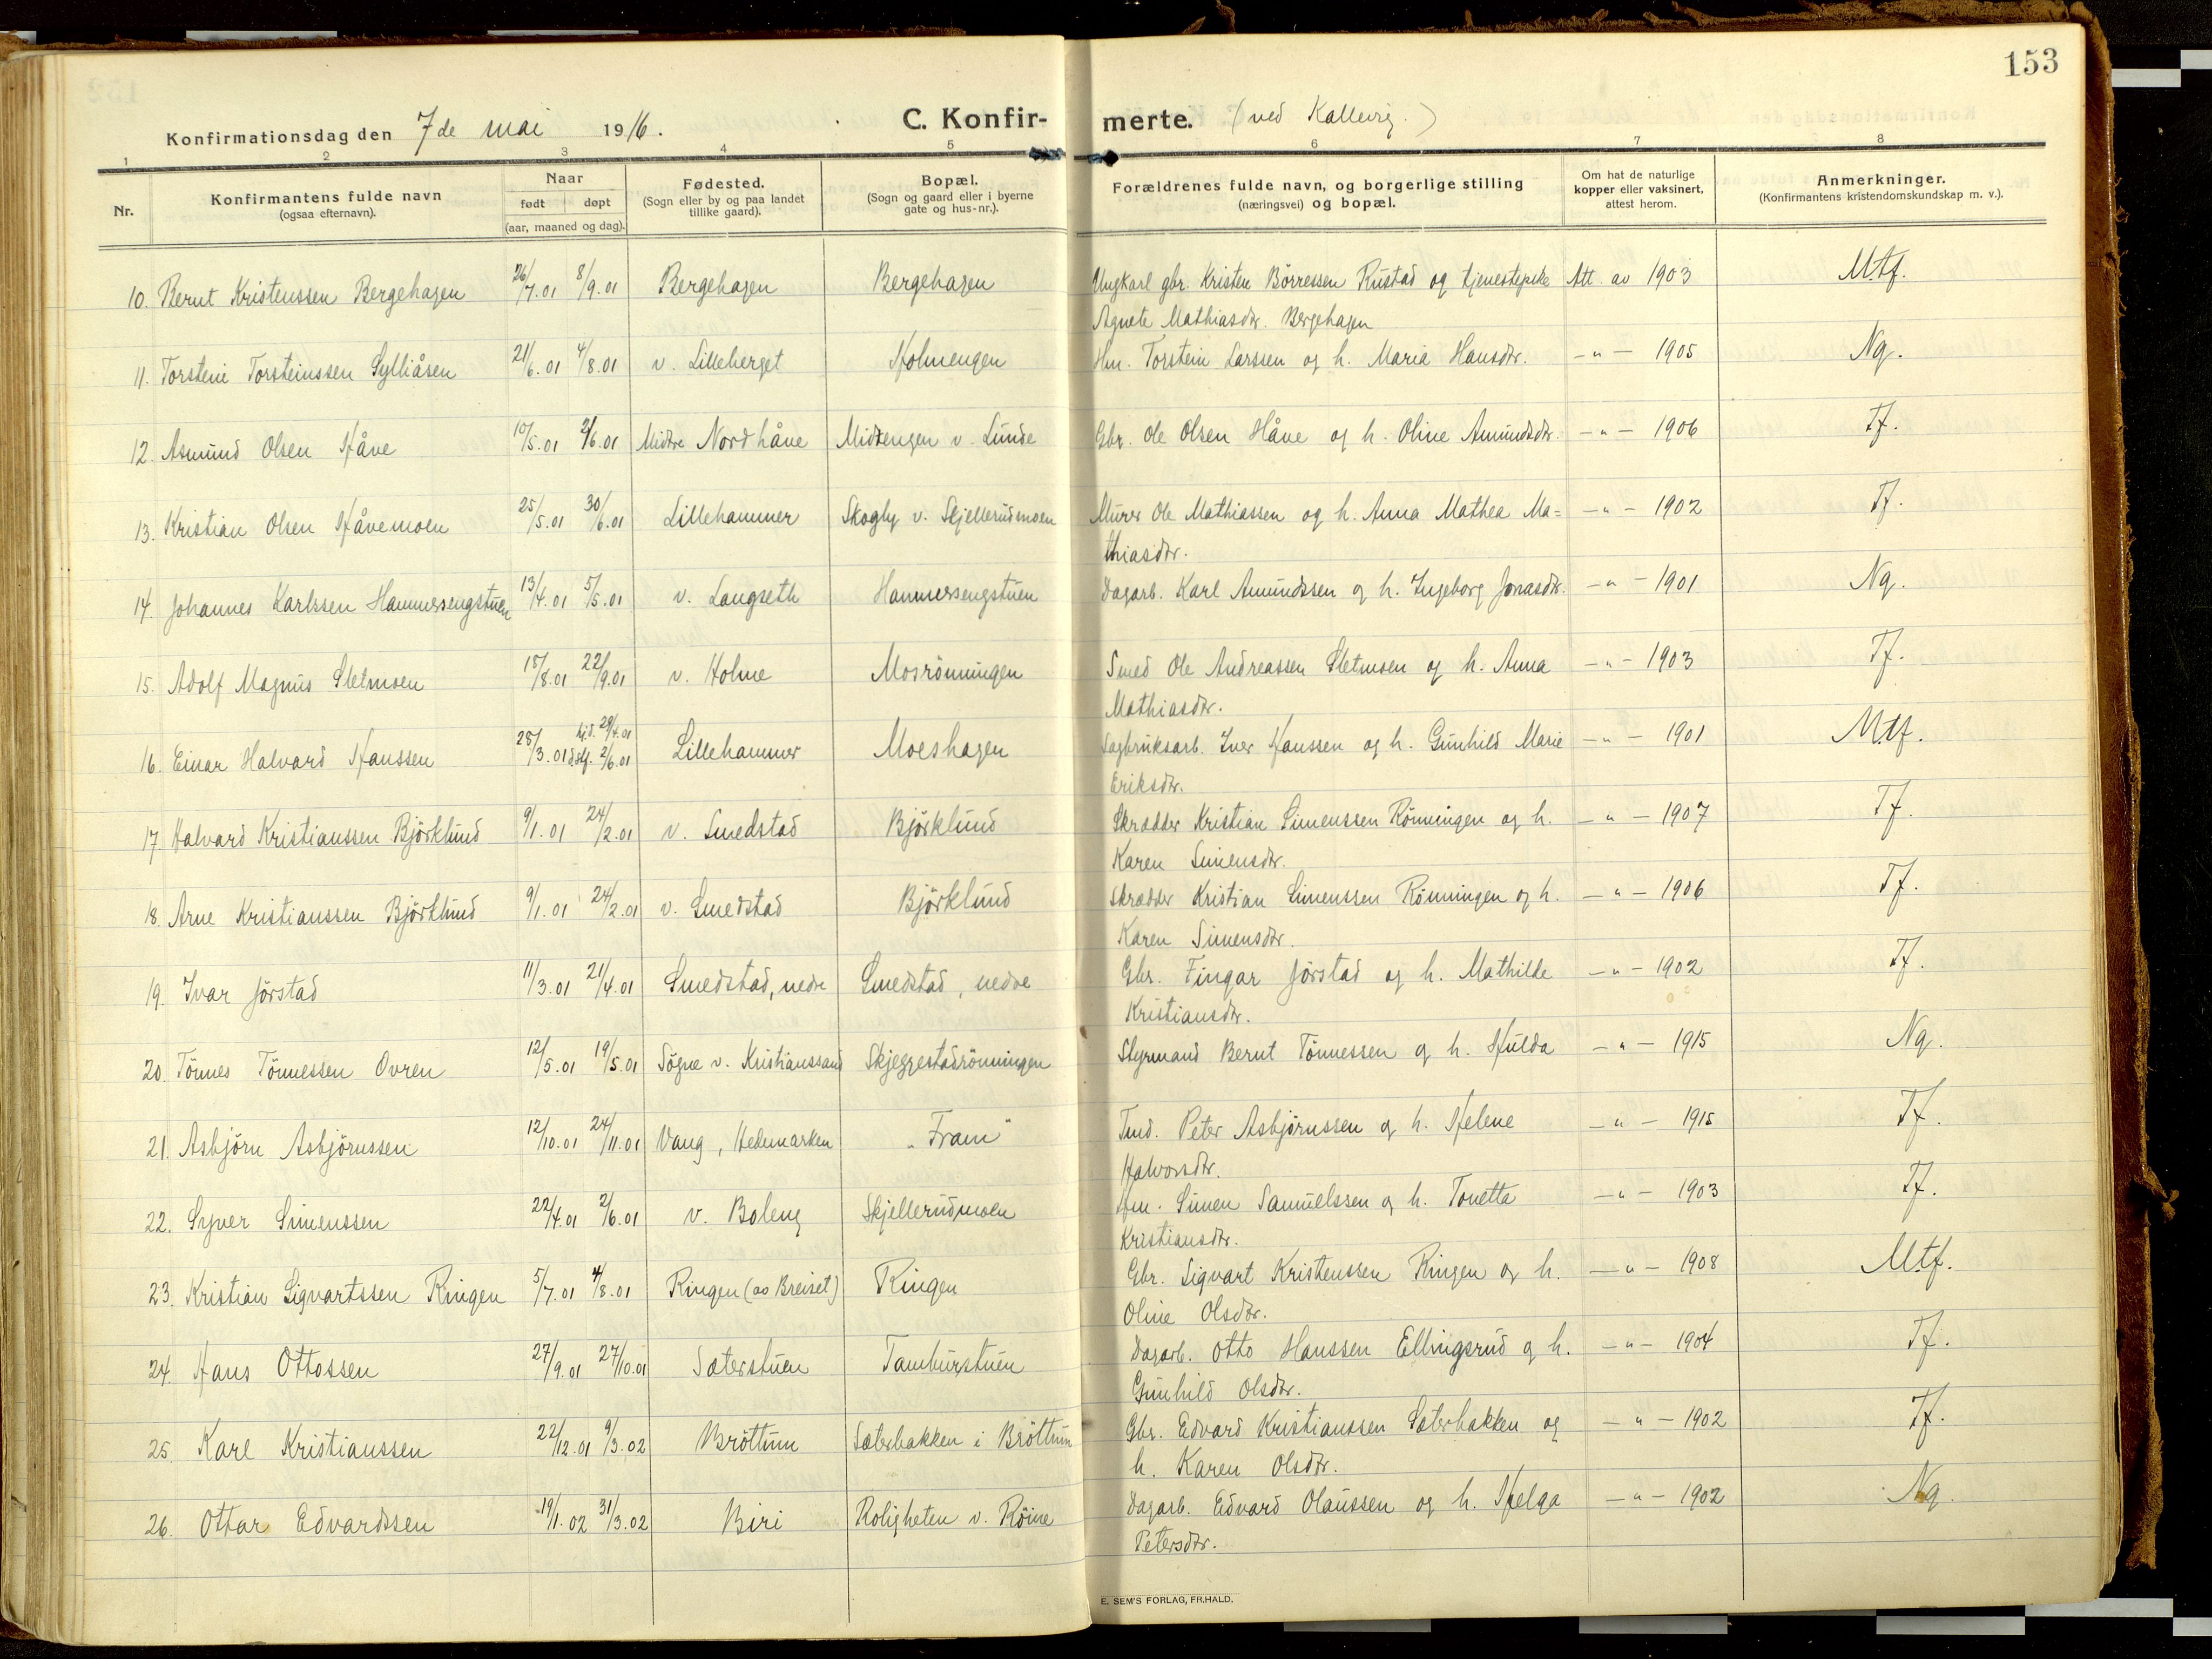 153
Konfirmationsdag den 7de mai 1916. C. Konfirmerte. (ved Kallevig.)
1 2 3 4 5 6 7 8
Nr. Konfirmantens fulde navn (ogsaa efternavn). Naar født døpt (aar, maaned og dag). Fødested. (Sogn eller by og paa landet tillike gaard). Bopæl. (Sogn og gaard eller i byerne gate og hus-nr.). Forældrenes fulde navn, og borgerlige stilling (næringsvei) og bopæl. Om hat de naturlige kopper eller vaksinert, attest herom. Anmerkninger. (Konfirmantens kristendomskundskap m. v.).
10. Bernt Kristenssen Bergehagen 26/7.01 8/9.01 Bergehagen Bergehagen Ungkarl gbr. Kristen Børressen Rustad og tjenestepike Att. av 1903 Mtf.
Agnete Mathiasdtr. Bergehagen
11. Torstein Torsteinssen Sylliåsen 21/6.01 4/8.01 v. Lilleberget Holmengen Hm. Torstein Larssen og h. Maria Hansdtr. -"- 1905 Ng.
12. Asmund Olsen Håve 10/5.01 2/6.01 Midtre Nordhåve Midtengen v. Lunde Gbr. Ole Olsen Håve og h. Oline Amundsdtr. -"- 1906 Tf.
13. Kristian Olsen Håvemoen 25/5.01 30/6.01 Lillehammer Skogly v. Skjellerudmoen Murer Ole Mathiassen og h. Anna Mathea Ma= -"- 1902 Tf.
thiasdtr.
14. Johannes Karlssen Hammersengstuen 13/4.01 5/5.01 v. Langseth Hammersengstuen Dagarb. Karl Amundssen og h. Ingeborg Jonasdtr. -"- 1901 Ng.
15. Adolf Magnus Sletmoen 18/8.01 22/9.01 v. Holme Mosrönningen Smed Ole Andreassen Sletmoen og h. Anna -"- 1903 Tf.
Mathiasdtr.
16. Einar Halvard Hanssen 28/3.01 hjd. 29/4.01 stf. 2/6.01 Lillehammer Moeshagen Sagbruksarb. Iver Hanssen og h. Gunhild Marie -"- 1901 Mtf.
Eriksdtr.
17. Halvard Kristianssen Björklund 9/1.01 24/2.01 v. Smedstad Björklund Skrædder Kristian Simenssen Rönningen og h. -"- 1907 Tf.
Karen Simensdtr.
18. Arne Kristianssen Björklund 9/1.01 24/2.01 v. Smedstad Björklund Skrædder Kristian Simenssen Rönningen og h. -"- 1906 Tf.
Karen Simensdtr.
19. Ivar Jörstad 11/3.01 21/4.01 Smedstad, nedre Smedstad, nedre Gbr. Fingar Jörstad og h. Mathilde -"- 1902 Tf.
Kristiansdtr.
20. Tönnes Tönnessen Ovren 12/5.01 19/5.01 Sögne v. Kristianssand Skjeggestadrönningen Styrmand Bernt Tönnessen og h. Hulda -"- 1915 Ng.
21. Asbjörn Asbjörnssen 12/10.01 24/11.01 Vang, Hedemarken "Fram" Tmd. Peter Asbjörnssen og h. Helene -"- 1915 Tf.
Halvorsdtr.
22. Syver Simenssen 22/4.01 2/6.01 v. Boleng Skjellerudmoen Hm. Simen Samuelssen og h. Tonetta -"- 1903 Tf.
Kristiansdtr.
23. Kristian Sigvartssen Ringen 5/7.01 4/8.01 Ringen (av Breiset) Ringen Gbr. Sigvart Kristenssen Ringen og h. -"- 1908 Mtf.
Oline Olsdtr.
24. Hans Ottossen 27/9.01 27/10.01 Sæterstuen Tamburstuen Dagarb. Otto Hanssen Ellingsrud og h. -"- 1904 Tf.
Gunhild Olsdtr.
25. Karl Kristianssen 22/12.01 9/3.02 Bröttum Sæterbakken i Bröttum Gbr. Edvard Kristianssen Sæterbakken og -"- 1902 Tf.
h. Karen Olsdtr.
26. Ottar Edvardssen 19/1.02 31/3.02 Biri Roligheten v. Röine Dagarb. Edvard Olaussen og h. Helga -"- 1902 Ng.
Petersdtr.
E. SEM'S FORLAG, FR.HALD.